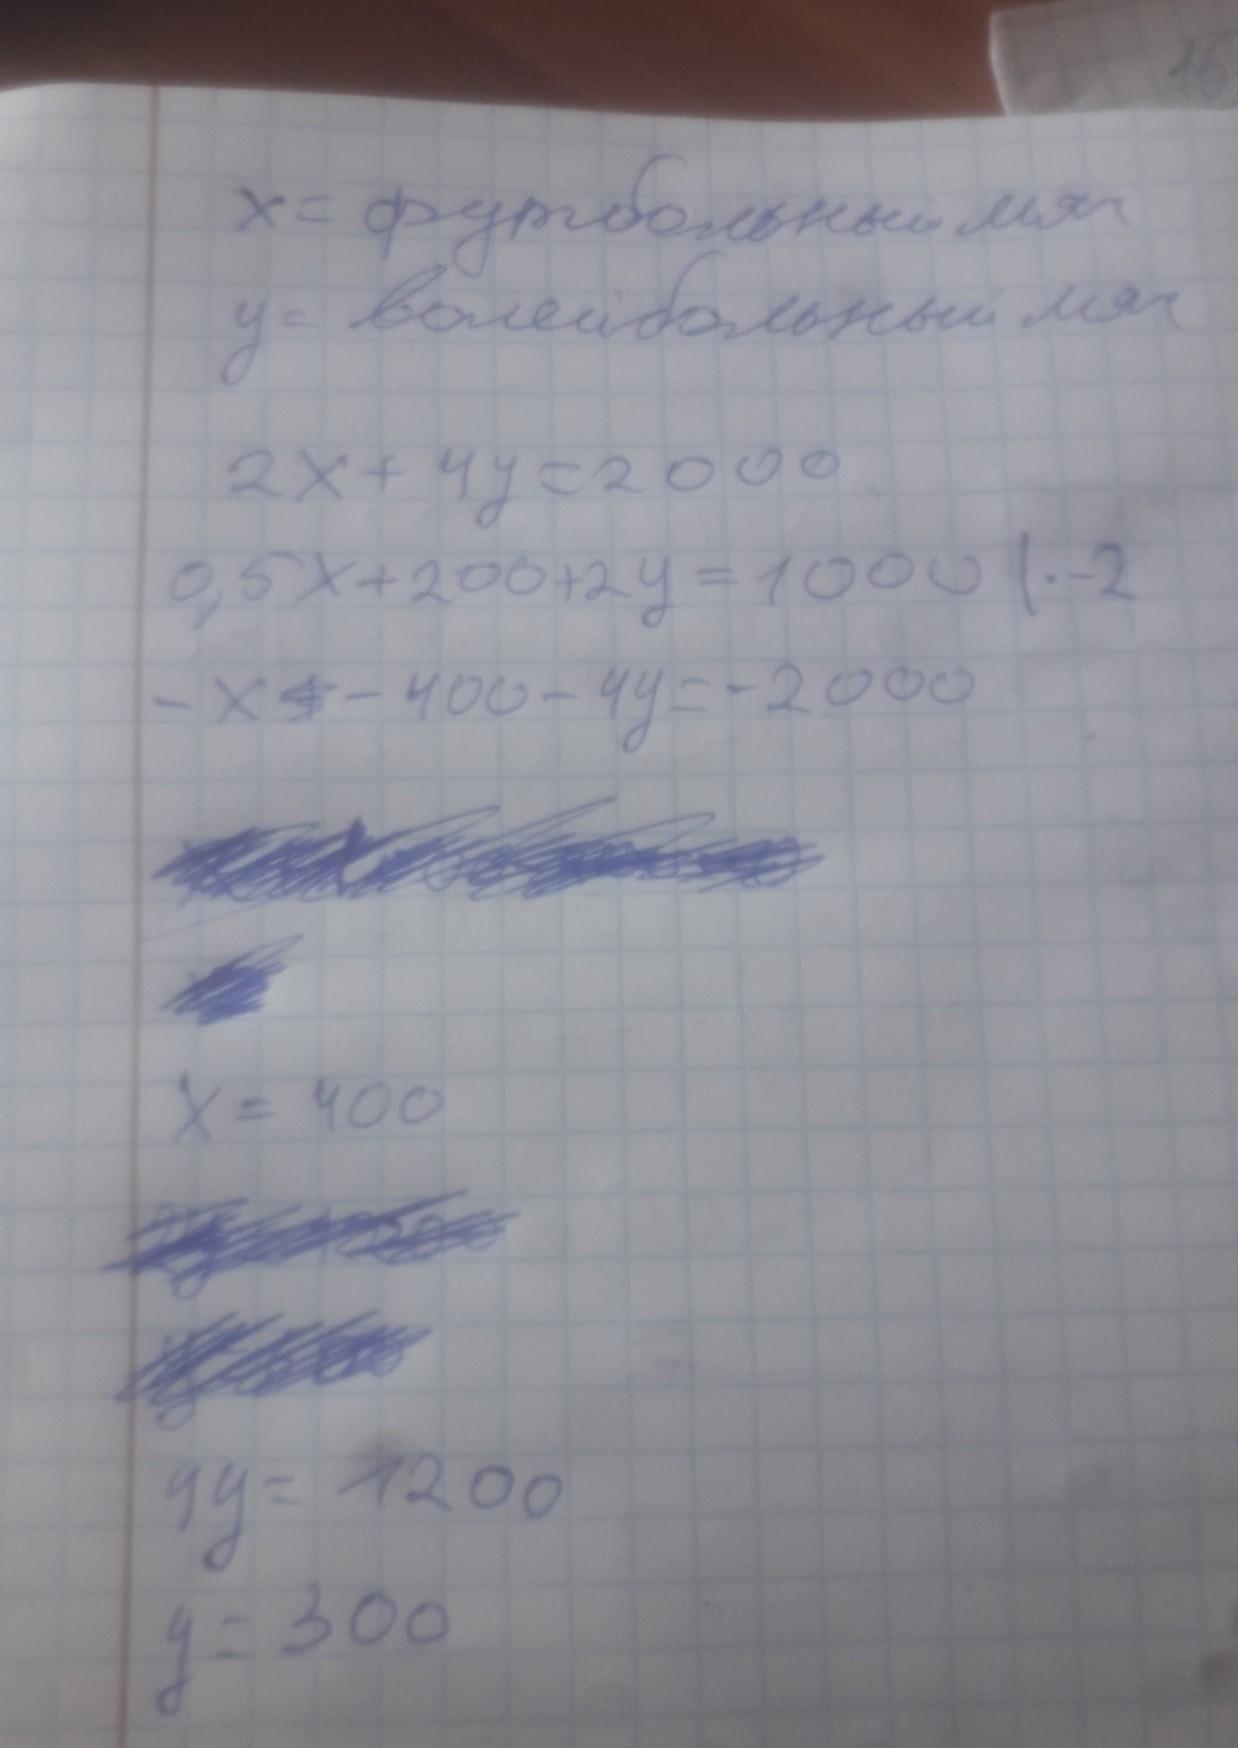 16
x = футбольный мяч
y = волейбольный мяч
2x + 4y = 2000
0,5x + 200 + 2y = 1000 | · -2
- x - 400 - 4y = -2000
x = 400
4y = 1200
y = 300